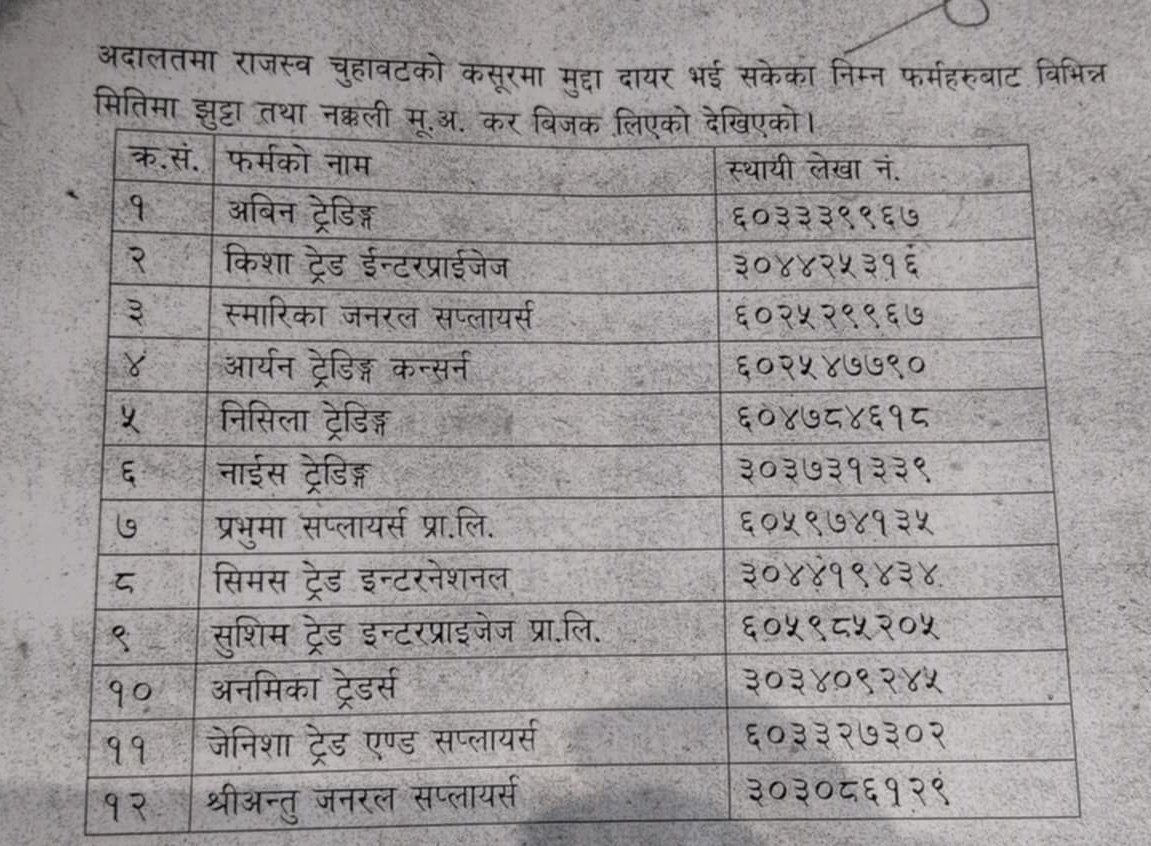 अदालतमा राजस्व चुहावटको कसूरमा मुद्दा दायर भई सकेका निम्न फर्महरुबाट विभिन्न
मितिमा झुट्टा तथा नक्कली मू.अ. कर विजक लिएको देखिएको।
क्र.सं. फर्मको नाम स्थायी लेखा नं.
१ अबिन ट्रेडिङ्ग ६०३३३९९६७
२ किशा ट्रेड ईन्टरप्राईजेज ३०४४२५३१६
३ स्मारिका जनरल सप्लायर्स ६०२५२९९६७
४ आर्यन ट्रेडिङ्ग कन्सर्न ६०२५४७७९०
५ निसिला ट्रेडिङ्ग ६०४७८४६१८
६ नाईस ट्रेडिङ्ग ३०३७३१३३९
७ प्रभुमा सप्लायर्स प्रा.लि. ६०५९७४१३५
८ सिमस ट्रेड इन्टरनेशनल ३०४४१९४३४
९ सुशिम ट्रेड इन्टरप्राइजेज प्रा.लि. ६०५९८५२०५
१० अनमिका ट्रेडर्स ३०३४०९२४५
११ जेनिशा ट्रेड एण्ड सप्लायर्स ६०३३२७३०२
१२ श्रीअन्तु जनरल सप्लायर्स ३०३०८६१२९